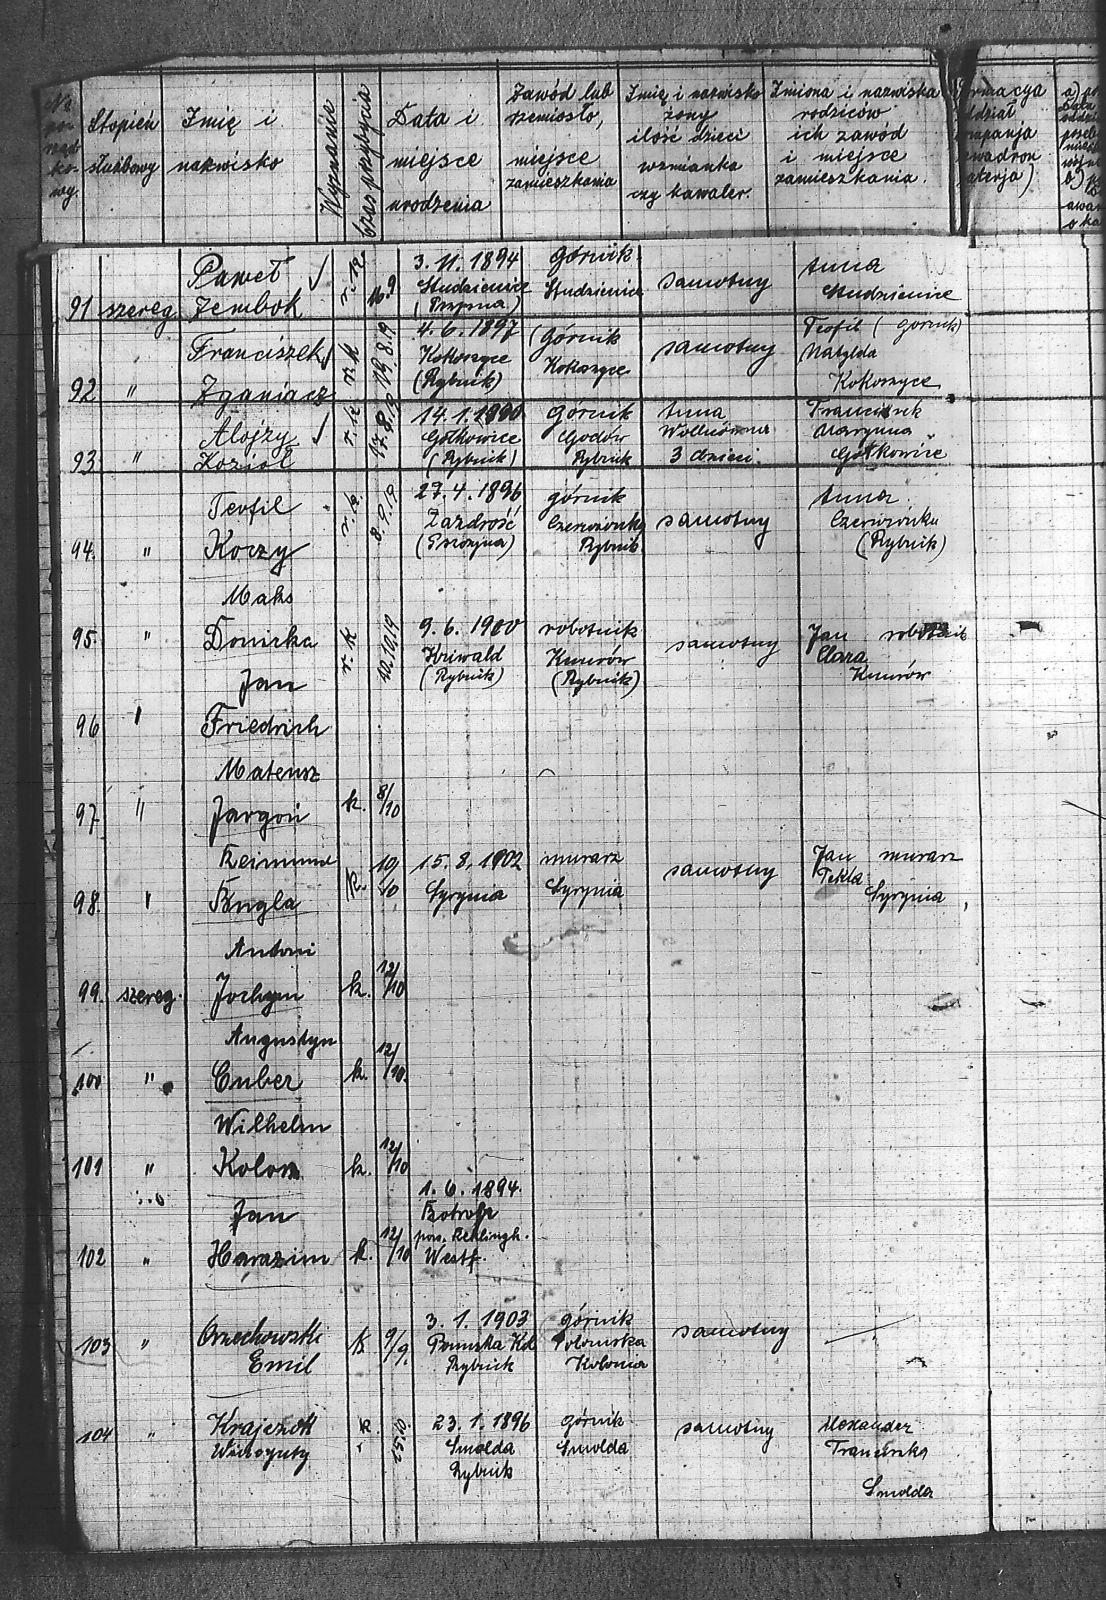 No porządkowy
Stopień służbowy
Imię i nazwisko
Wyznanie
Czas przybycia
Data i miejsce urodzenia
Zawód lub rzemiosło, miejsce zamieszkania
Imię i nazwisko żony ilość dzieci wzmianka czy kawaler.
Imiona i nazwiska rodziców ich zawód i miejsce zamieszkania.
91 szereg. Paweł Zembok r. k. 16.9 3. 11. 1894 Studzienice (Pszyna) Górnik Studzienice samotny Anna Studzienice
92 " Franciszek Zganiacz r. k. 19.8.19 4. 6. 1897 Kokoszyce (Rybnik) Górnik Kokoszyce samotny Teofil (górnik) Matylda Kokoszyce
93 " Alojzy Kozioł r. k. 17.8. 14. 1. 1890 Gołkowice (Rybnik) Górnik Godów Rybnik Anna 3 dzieci. Franciszek Maryanna Gołkowice
94. " Teofil Koczy r. k. 8.9.19 27. 4. 1896 Zazdrość (Pszczyna) górnik Czerwionka Rybnik samotny Anna Czerwionka (Rybnik)
95. " Maks Donicka r. k. 10.10.19 9. 6. 1900 Kriwald (Rybnik) robotnik Knurów (Rybnik) samotny Jan robotnik Clara Knurów
96 " Jan Friedrich
97 " Mateusz Jargoń k. 8/10
98. " Reimund Bugla k. 10/10 15. 8. 1902 Syrynia murarz Syrynia samotny Jan murarz Tekla Syrynia
99. szereg. Antoni Jochym k. 12/10
100 " Augustyn Cuber k. 12/10.
101 " Wilhelm Kolon k. 12/10
102 " Jan Harazim k. 12/10 1. 6. 1894. Botrop pow. Reklingh. Westf.
103 " Orzechowski Emil k 9/9. 3. 1. 1903 Rybnik górnik Kolonia samotny
104 " Krajczok r k. 15.10. 23. 1. 1896 Smolda Rybnik górnik Smolda samotny Alexander Franciszka Smolda